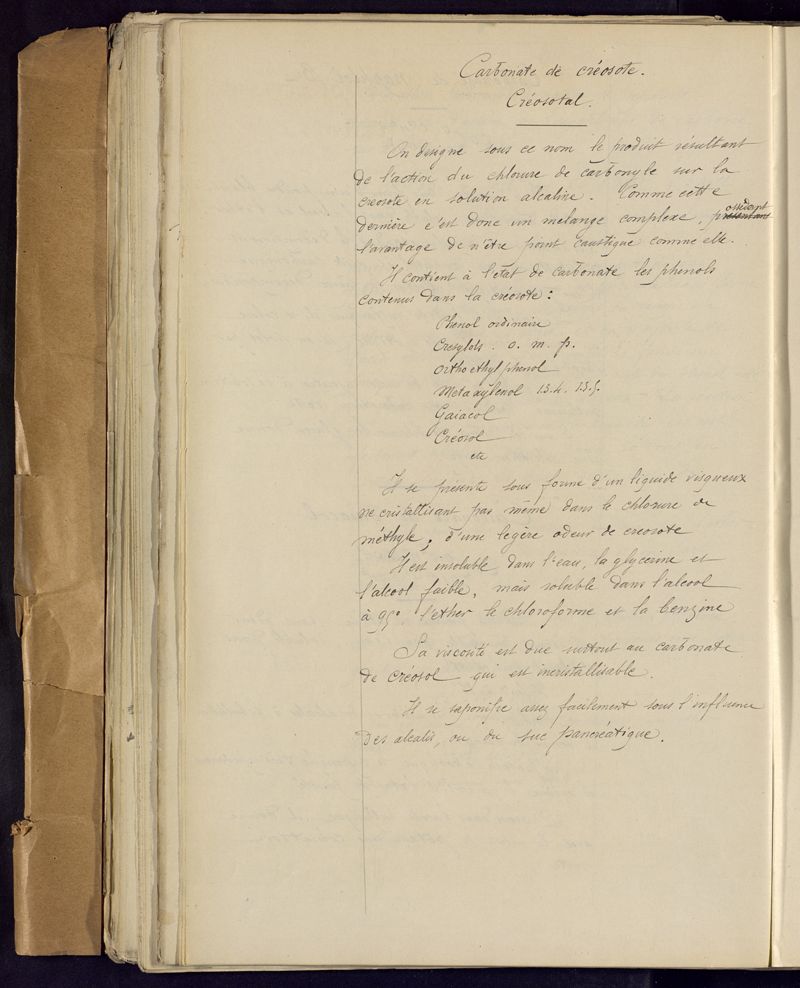 Carbonate de créosote.
Créosotal.
On designe sous ce nom le produit résultant
de l'action du chlorure de carbonyle sur la
creosote en solution alcaline. Comme cette
dernière c'est donc un melange complexe, possédant
l'avantage de n'être point caustique comme elle.
Il contient à l'état de carbonate les phenols
contenus dans la créosote :
Phenol ordinaire
Cresylols . o. m. p.
Orthoethylphenol
Metaxylenol 1.3.4. 1.3.5.
Gaiacol
Créosol
etc
Il se présente sous forme d'un liquide visqueux
ne cristallisant pas même dans le chlorure de
méthyle, d'une legère odeur de creosote
Il est insoluble dans l'eau, la glycerine et
l'alcool faible, mais soluble dans l'alcool
à 95°, l'ether le chloroforme et la benzine
Sa viscosité est due surtout au carbonate
de créosol qui est incristallisable.
Il se saponifie assez facilement sous l'influence
des alcalis, ou du suc pancréatique.